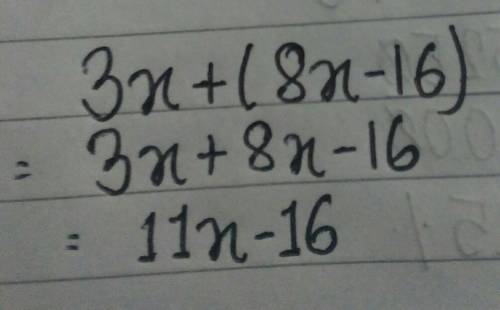 3x+(8x-16)
= 3x+8x-16
= 11x-16